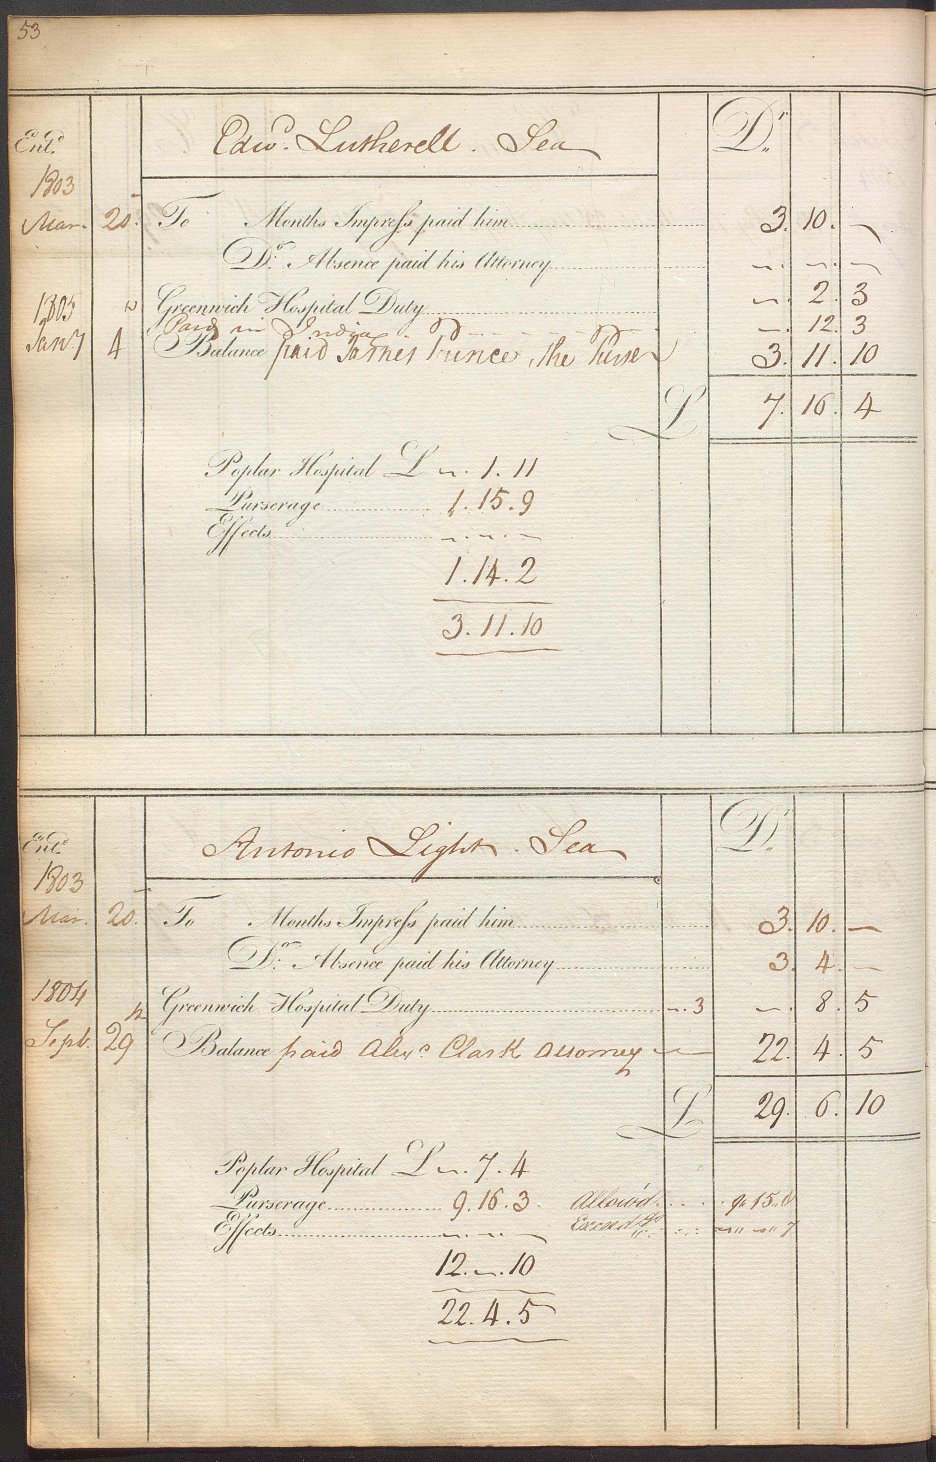 53
Ent.d Edw.d Lutherell . Sea Dr.
1803
Mar. 20. To Months Impress paid him 3. 10. -
Do. Absence paid his Attorney - . - . -
1805 Greenwich Hospital Duty - . 2 . 3
Paid in India - . 12 . 3
Jany 4 Balance paid James Prince, the Purser 3. 11. 10
£ 7. 16. 4
Poplar Hospital £ - . 1 . 11
Purserage 1 . 15 . 9
Effects - . - . -
1 . 14 . 2
3 . 11 . 10
Ent.d Antonio Light . Sea Dr.
1803
Mar. 20. To Months Impress paid him 3. 10. -
Do. Absence paid his Attorney 3. 4. -
1804 Greenwich Hospital Duty - . 3 - . 8 . 5
Sept. 29 Balance paid Alexr Clark Attorney 22. 4. 5
£ 29. 6. 10
Poplar Hospital £ - . 7 . 4
Purserage 9 . 16 . 3 Allow'd 9 . 15 . 8
Effects - . - . - Exceed.g - " - " 7
12 . - . 10
22 . 4 . 5